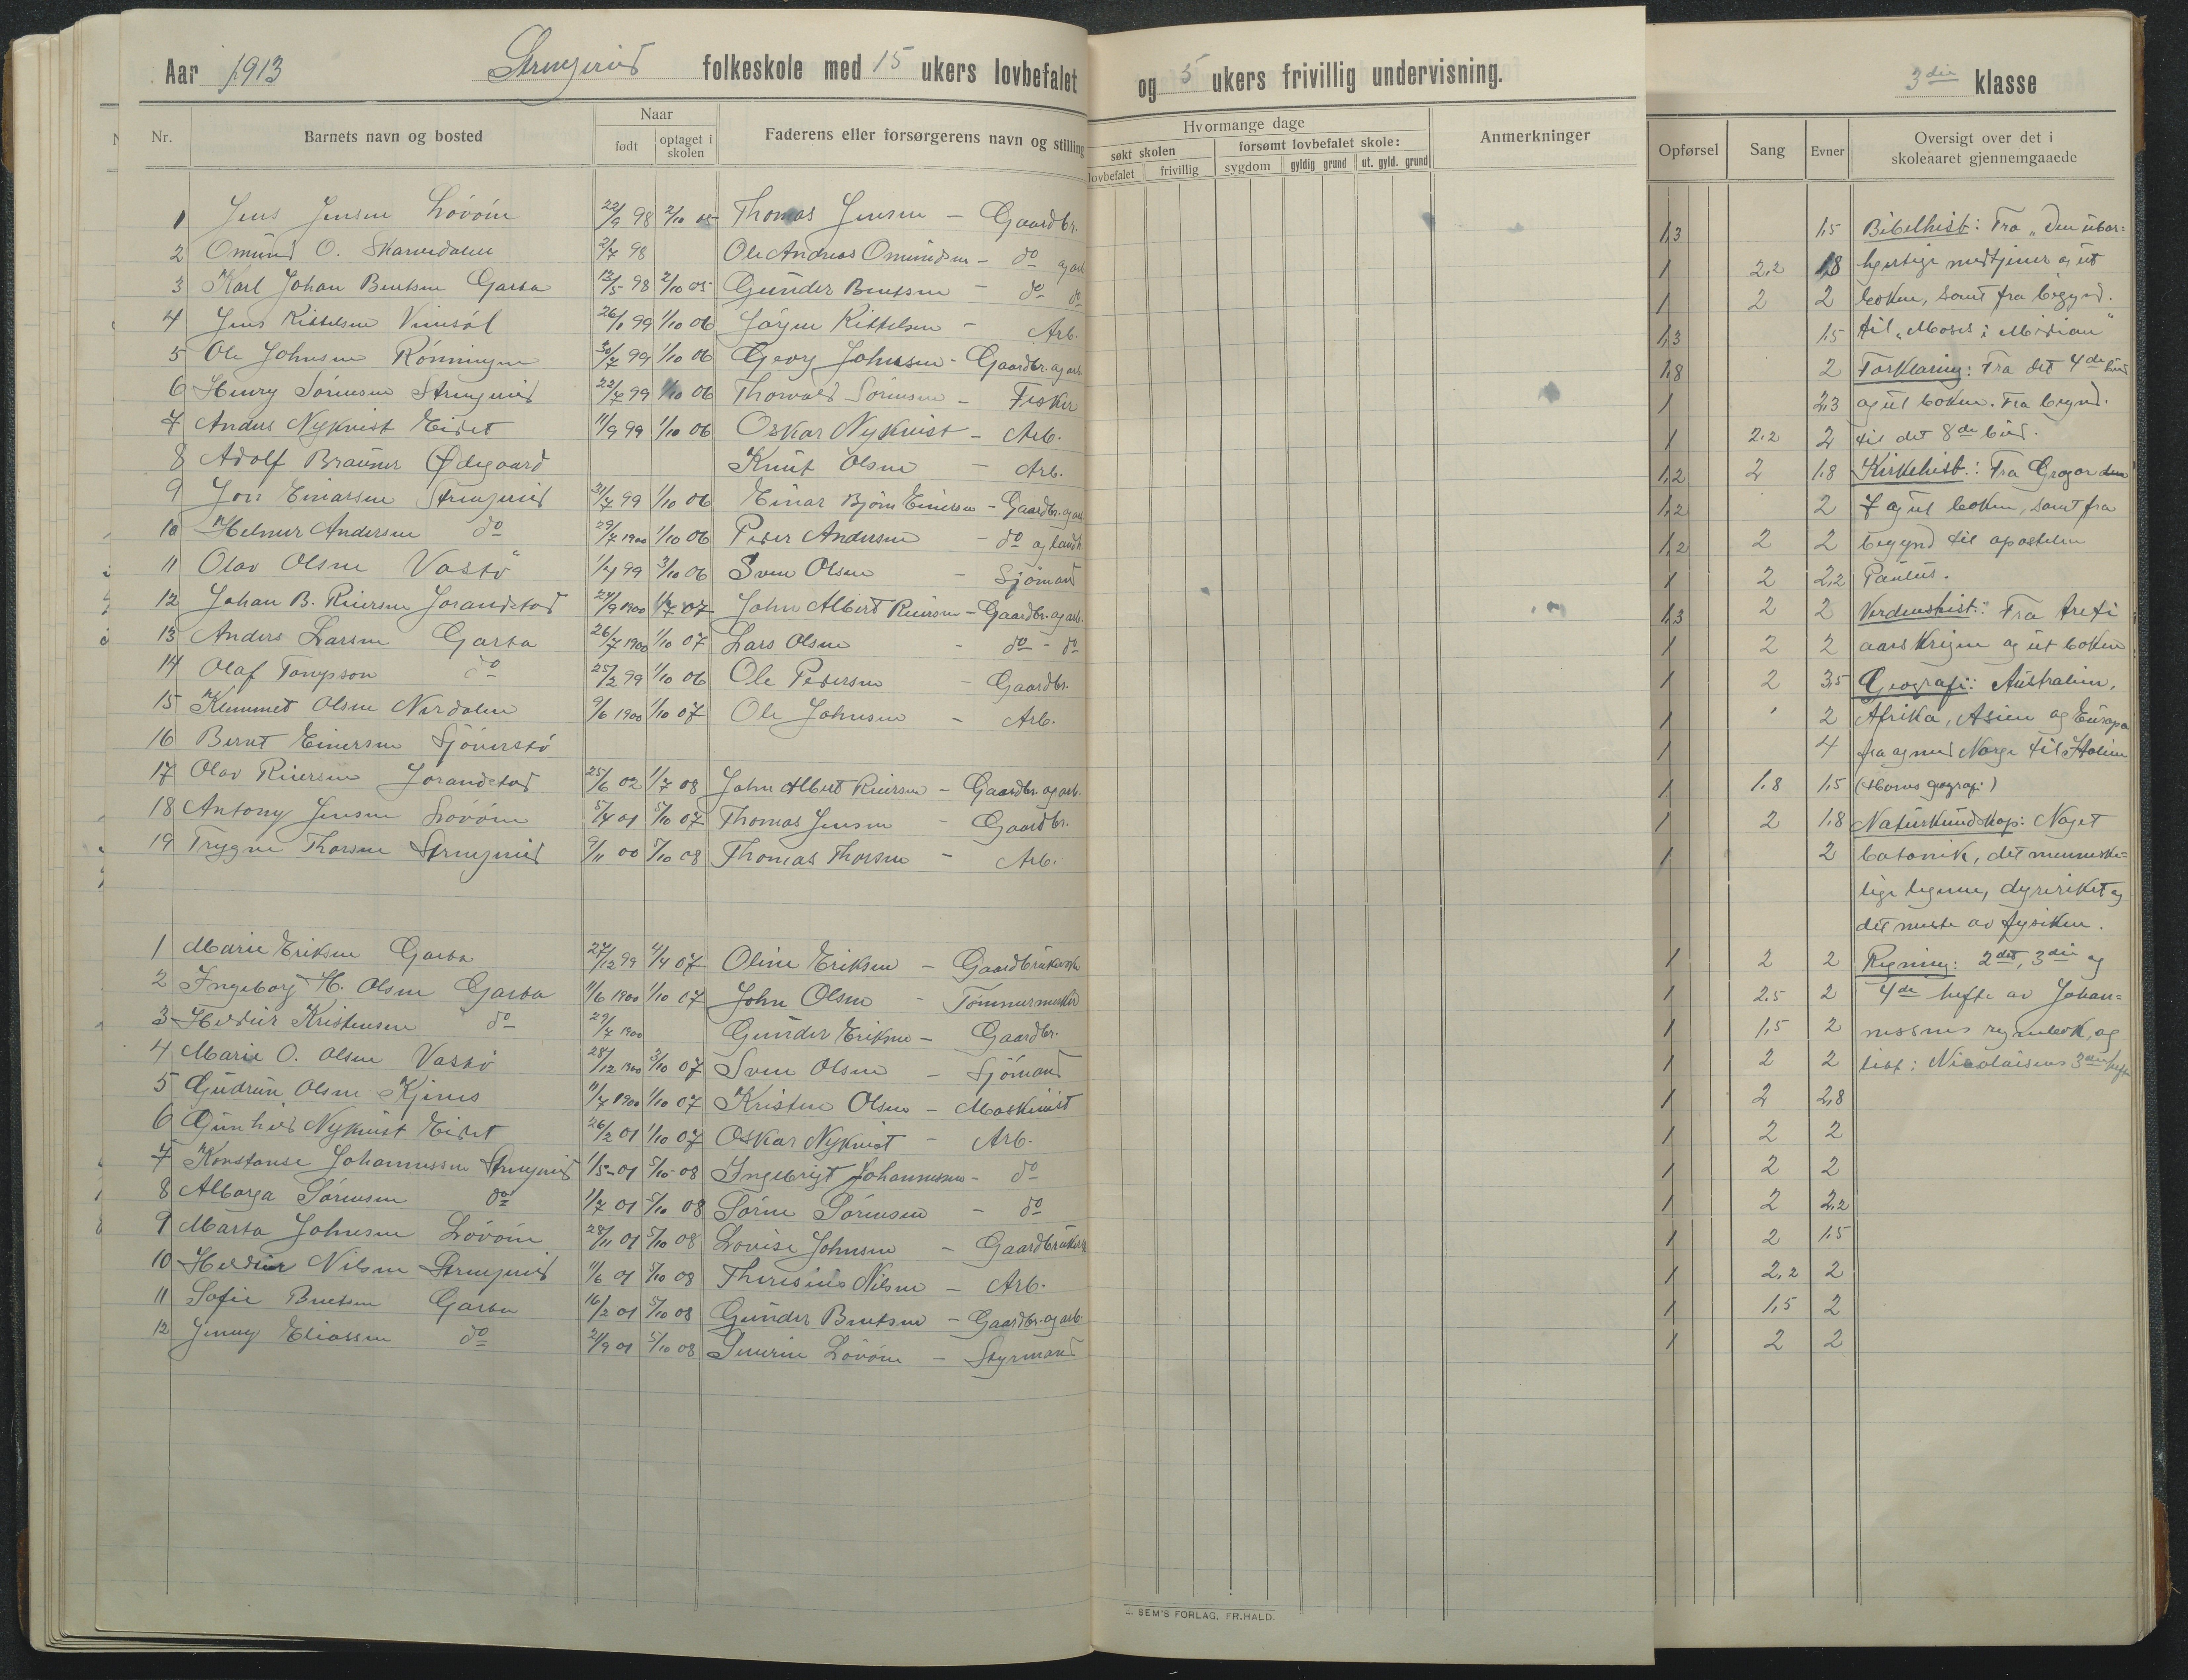 Aar 1913 Strengereid folkeskole med 15 ukers lovbefalet og 5 ukers frivillig undervisning. 3die klasse
Nr. Barnets navn og bosted Naar født optaget i skolen Faderens eller forsørgerens navn og stilling
Hvormange dage søkt skolen lovbefalet frivillig forsømt lovbefalet skole: sygdom gyldig grund ut. gyld. grund Anmerkninger
Opførsel Sang Evner Oversigt over det i skoleaaret gjennemgaaede
1 Jens Jensen Lövöin 22/9 98 2/10 05 Thomas Jensen - Gaardbr. 1,3 1,5
2 Omund O. Skarvedalen 2/7 98 Ole Andreas Omundsen - do og arb 1 2,2 1,8
3 Karl Johan Bentsen Garta 12/5 98 2/10 05 Gunder Bentsen - do do 1 2 2
4 Jens Kittelsen Vinsöl 26/1 99 1/10 06 Jörgen Kittelsen - Arb. 1,3 1,5
5 Ole Johnsen Rönningen 30/7 99 1/10 06 Georg Johnsen - Gaardbr. og arb 1,8 2
6 Henry Sörensen Strengereid 22/7 99 1/10 06 Thorvald Sörensen - Fisker 1 2,3
7 Anders Nykvist Eidet 11/9 99 1/10 06 Oskar Nykvist - Arb. 1 2,2 2
8 Adolf Brauner Ødegaard Knut Olsen - Arb. 1,2 2 1,8
9 Jon Einarsen Strengereid 31/7 99 1/10 06 Einar Björn Einersen - Gaardbr. og arb 1,2 2
10 Helmer Andersen do 29/7 1900 1/10 06 Peder Andersen - do og landh. 1,2 2 2
11 Olav Olsen Vastö 1/4 99 3/10 06 Sven Olsen - Sjömand 1 2 2,2
12 Johan B. Reiersen Jorandstad 24/9 1900 1/7 07 John Albert Reiersen - Gaardbr. og arb. 1,3 2 2
13 Anders Larsen Garta 26/7 1900 1/10 07 Lars Olsen - do - do 1 2 2
14 Olaf Tompson do 25/2 99 1/10 06 Ole Pedersen - Gaardbr. 1 2 3,5
15 Klemmet Olsen Nerdalen 9/6 1900 1/10 07 Ole Johnsen - Arb. 1 2
16 Bernt Einersen Sjöverstö 1 4
17 Olav Reiersen Jorandstad 25/6 02 1/7 08 John Albert Reiersen - Gaardbr. og arb. 1 1,8 1,5
18 Antony Jensen Lövöin 5/4 01 5/10 07 Thomas Jensen - Gaardbr. 1 2 1,8
19 Trygve Thorsen Strengereid 9/11 00 5/10 08 Thomas Thorsen - Arb. 1 2
1 Marie Eriksen Garta 27/12 99 4/4 07 Oline Eriksen - Gaardbrukerske 1 2 2
2 Ingeborg H. Olsen Garta 11/6 1900 1/10 07 John Olsen - Tömmermester 1 2,5 2
3 Heddur Kristensen do 29/7 1900 Gunder Eriksen - Gaardbr. 1 1,5 2
4 Marie O. Olsen Vastö 28/12 1900 3/10 07 Sven Olsen - Sjömand 1 2 2
5 Gudrun Olsen Kjenes 11/7 1900 1/10 07 Kristen Olsen - Maskinist 1 2 2,8
6 Gunhild Nykvist Eidet 26/2 01 1/10 07 Oskar Nykvist - Arb. 1 2 2
7 Konstanse Johannessen Strengereid 1/5-01 5/10-08 Ingebrigt Johannessen - do 1 2 2
8 Alborga Sörensen do 1/7 01 5/10 08 Sörne Sörensen - do 1 2 2,2
9 Marta Johnsen Lövöin 28/11 01 5/10 08 Lovise Johnsen - Gaardbruker 1 2 1,5
10 Heddur Nilsen Strengereid 11/6 01 5/10 08 Theresius Nilsen - Arb. 1 2,2 2
11 Sofie Bentsen Garta 16/2 01 5/10 08 Gunder Bentsen - Gaardbr. og arb. 1 1,5 2
12 Jenny Eliassen do 21/9 01 5/10 08 Severin Lövöin - Styrmand 1 2 2
Bibelhist: Fra "Den ubar=
hjertige medtjener og ut
boken, samt fra begynd.
til "Moses i Midian"
Forklaring: Fra det 4de bud
og ut boken. Fra begynd.
til det 8de bud.
Kirkehist.: Fra Gregor den
7 og ut boken, samt fra
begynd til apostelen
Paulus.
Verdenshist: Fra treti
aars krigen og ut boken
Geografi: Australien,
Afrika, Asien og Europa
fra og med Norge til Italien
(Horns geografi)
Naturkundskap: Noget
botanik, det menneske=
lige legeme, dyreriket og
det meste av fysiken.
Regning: 2det, 3die og
4de hefte av Johan=
nesens regnebok, og
tist: Nicolaisens 3die hefte
E. SEM'S FORLAG, FR.HALD.